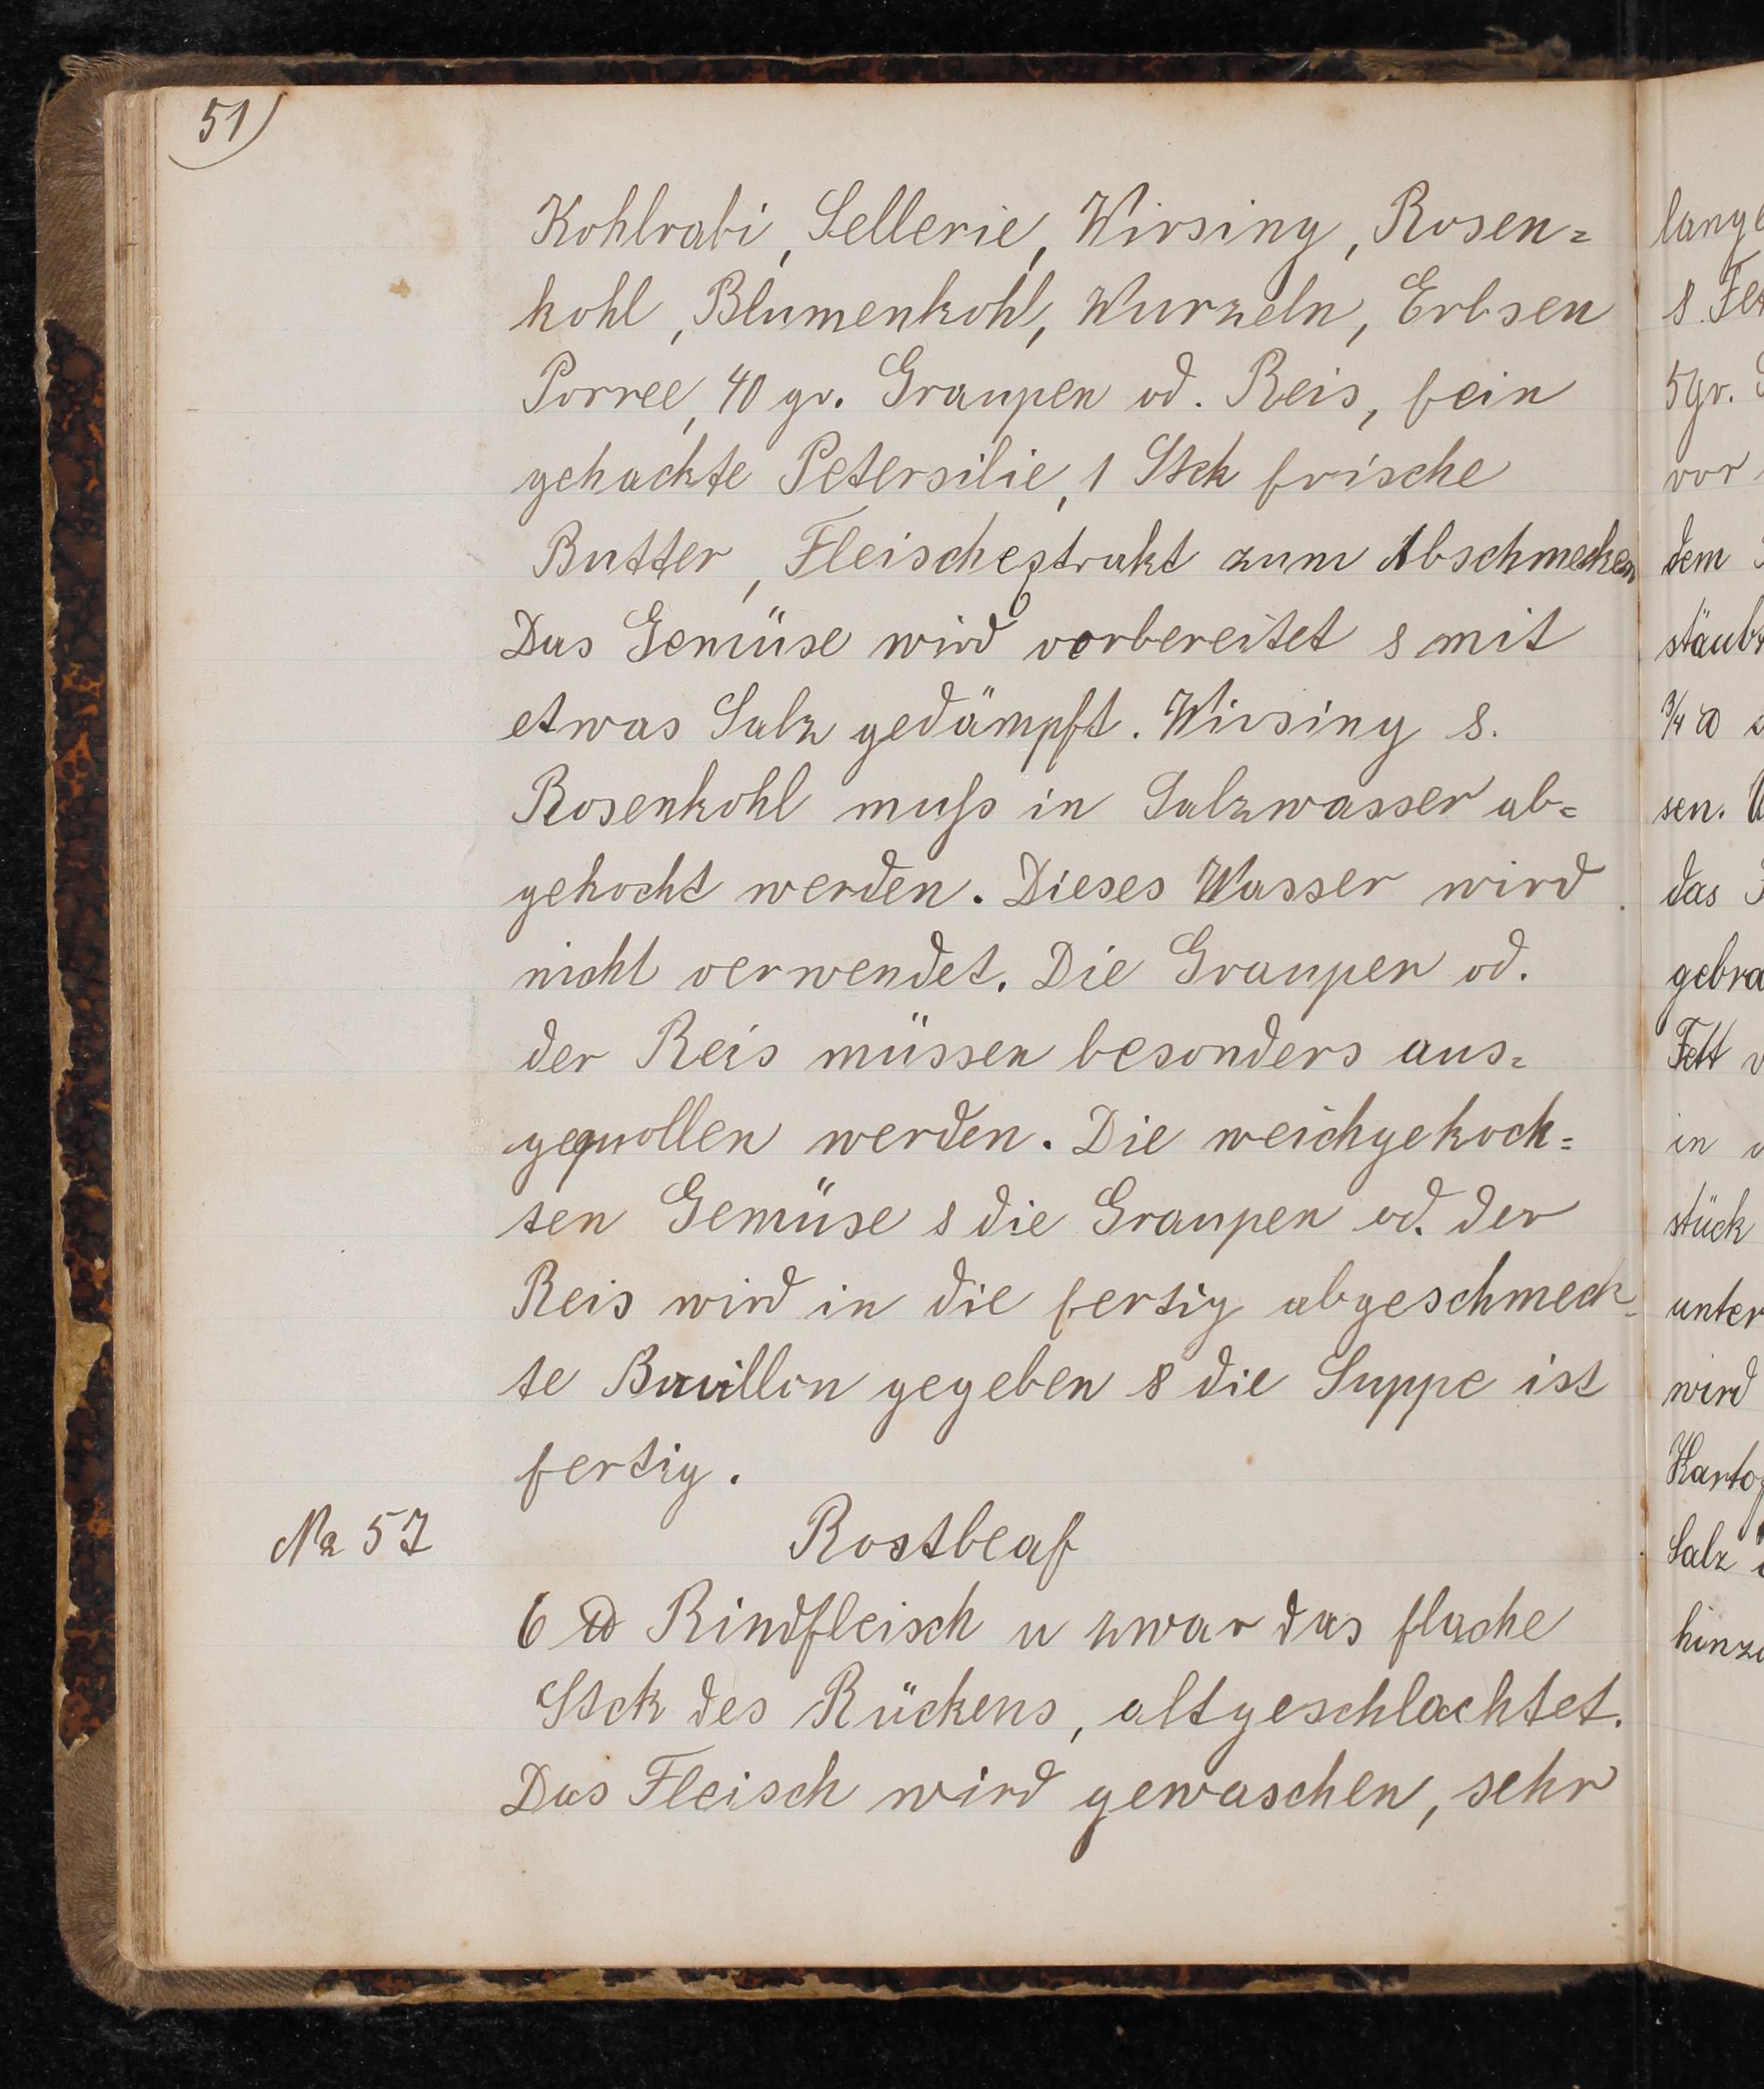 51)
Kohlrabi, Sellerie, Wirsing, Rosen=
kohl, Blumenkohl, Wurzeln, Erbsen
Porree, 40 gr. Graupen od. Reis, fein
gehackte Petersilie, 1 Stck frische
Butter, Fleischextrakt zum Abschmecken
Das Gemüse wird vorbereitet & mit
etwas Salz gedämpft. Wirsing &.
Rosenkohl muſs in Salzwasser ab=
gekocht werden. Dieses Wasser wird
nicht verwendet. Die Graupen od.
der Reis müssen besonders aus=
gequollen werden. Die weichgekoch=
ten Gemüse & die Graupen od. der
Reis wird in die fertig abgeschmeck=
te Bouillon gegeben & die Suppe ist
fertig.
No 57 Rostbeaf
6 ℔ Rindfleisch u zwar das flache
Stck des Rückens, altgeschlachtet.
Das Fleisch wird gewaschen, sehr
lange
&
5gr.
vor
dem
stäubt
3/4 ℔
sen.
das
gebra
Fett
in
stück
unter
wird
Kartof
Salz
hinzu